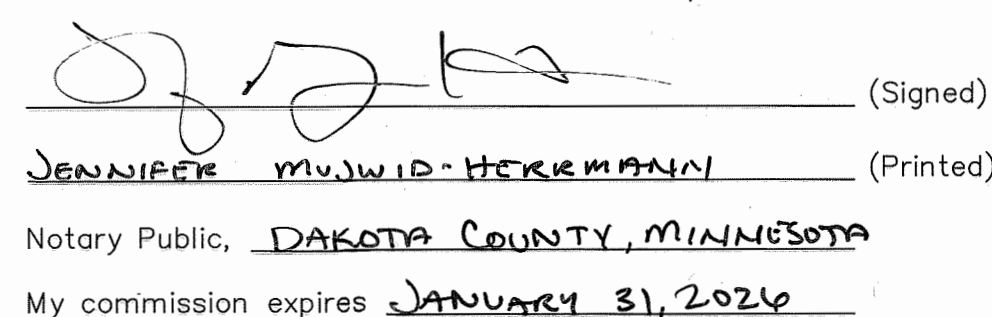 (Signed)
JENNIFER MUJWID-HERRMANN (Printed)
Notary Public, DAKOTA COUNTY, MINNESOTA
My commission expires JANUARY 31, 2026